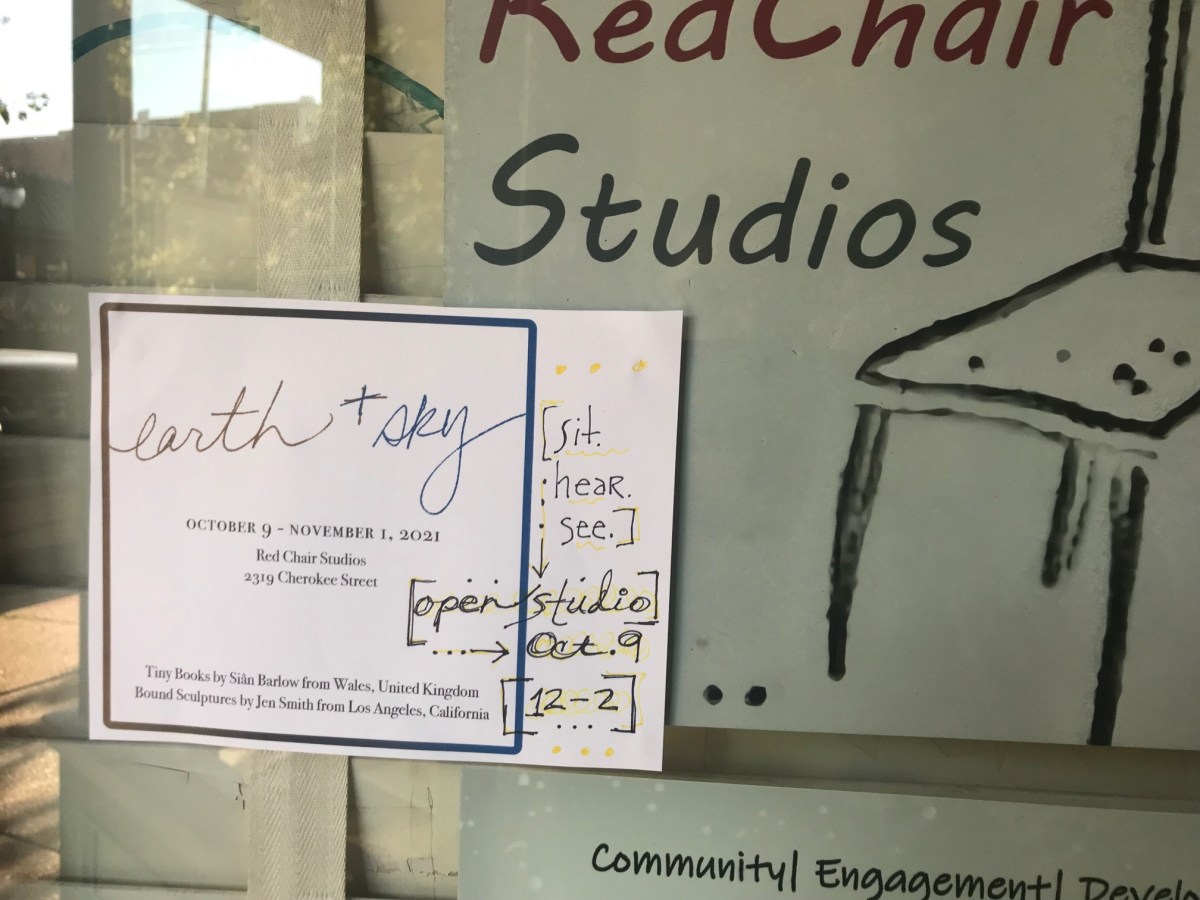 RedChair
Studios
earth + sky
OCTOBER 9 – NOVEMBER 1, 2021
Red Chair Studios
2319 Cherokee Street
Tiny Books by Siân Barlow from Wales, United Kingdom
Bound Sculptures by Jen Smith from Los Angeles, California
[sit.
hear.
see.]
[open/studio]
Oct. 9
[12-2]
Community| Engagement|